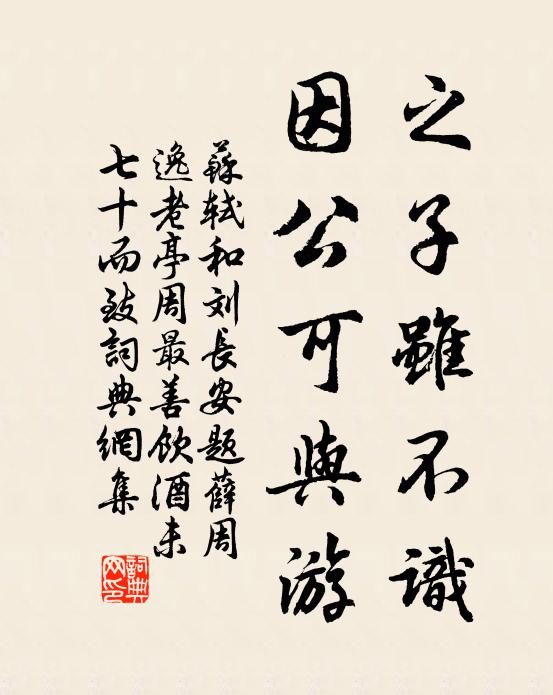 之子雖不識
因公可與游
蘇軾和刘長安題薛周
逸老亭周最善飲酒未
七十而致詞典網集
詞典網印